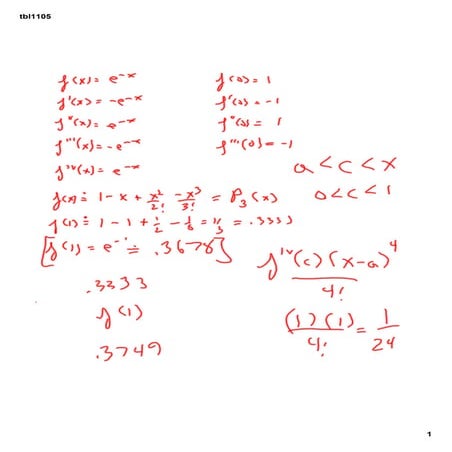 tbl1105
f(x) = e^-x f(0) = 1
f'(x) = -e^-x f'(0) = -1
f''(x) = e^-x f''(0) = 1
f'''(x) = -e^-x f'''(0) = -1
f^iv(x) = e^-x a < c < x
f(x) ≐ 1 - x + x²/2! - x³/3! = P₃(x) 0 < c < 1
f(1) ≐ 1 - 1 + 1/2 - 1/6 = 1/3 = .3333
[f(1) = e^-1 ≐ .3678] f^iv(c)(x-a)^4/4!
.3333
f(1) (1)(1)/4! = 1/24
.3749
1